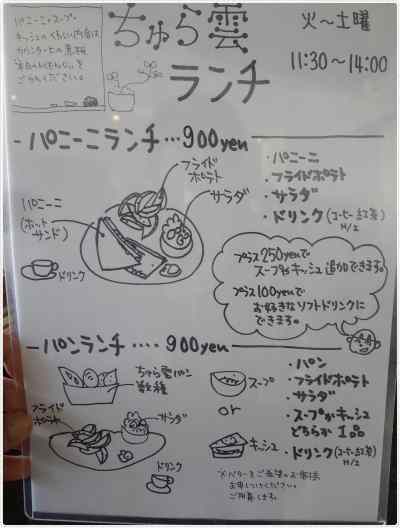 パニーニ、スープ、
キッシュのくわしい内容は
カウンター上の黒板
ごらんください。
ちゅら雲
ランチ
火～土曜
11:30～14:00
パニーニランチ…900yen
・パニーニ
・フライドポテト
・サラダ
・ドリンク(コーヒー紅茶)
H/I
フライド
ポテト
サラダ
パニーニ
(ホット
サンド)
ドリンク
プラス250yenで
スープかキッシュ追加できます。
プラス100yenで
お好きなソフトドリンクに
できます。
パンランチ‥‥900yen
ちゅら雲パン
数種
フライド
ポテト
サラダ
ドリンク
スープ
or
キッシュ
・パン
・フライドポテト
・サラダ
・スープかキッシュ
どちらか1品
・ドリンク(コーヒー紅茶)
H/I
※バターをご希望のお客様
お申しつけください。
ご用意します。